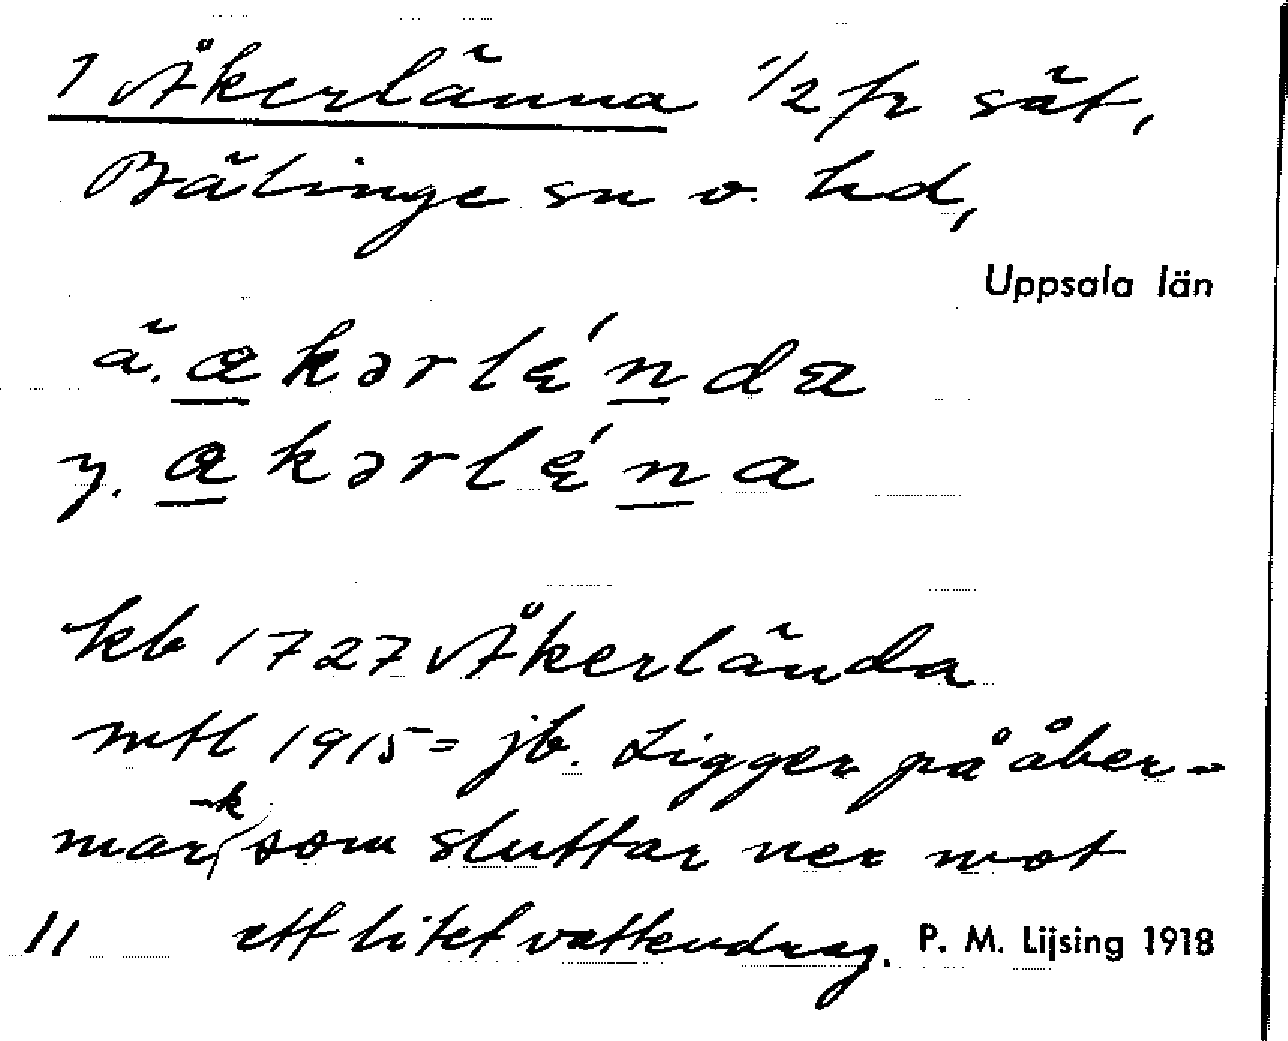 1 Åkerlänna 1/2 fr sät,
Bälinge sn o. hd,
Uppsala län
ä. ɑkərlɛ́nda
y. ɑkərlɛ́na
kb 1727 Åkerlända
mtl 1915 = jb. Ligger på åker-
mark som sluttar ner mot
11 ett litet vattendrag. P. M. Lijsing 1918